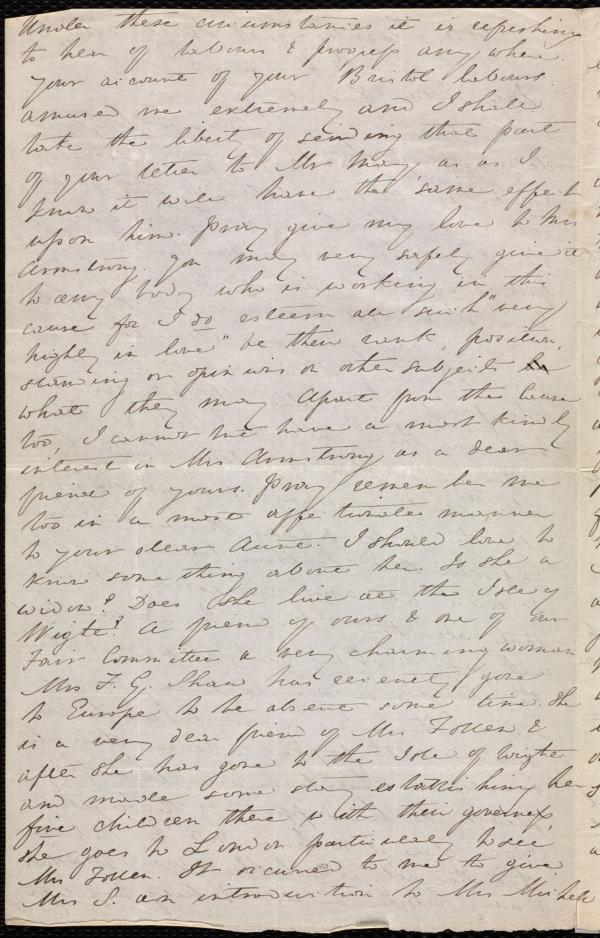 Under these circumstances it is refreshing
to hear of labours & progress any where.
your account of your Bristol labours
amused me extremely and I shall
take the liberty of sending that part
of your letter to Mr May, as as I
know it will have the same effect
upon him. Pray give my love to Mrs
Armstrong. You may very safely give it
to any body who is working in this
cause for I do esteem all such "very
highly in love" be their rank, position,
standing or opinions on other subjects
what they may. Apart from the Cause
too, I cannot but have a most kindly
interest in Mrs Armstrong as a dear
friend of yours. Pray remember me
too in a most affectionate manner
to your dear Aunt. I should love to
know some thing about her. Is she a
widow? Does she live at the Isle of
Wight? A friend of ours & one of our
Fair Committee a very charming woman
Mrs F. G. Shaw has recently gone
to Europe to be absent some time. She
is a very dear friend of Mrs Follen &
after she has gone to the Isle of Wight
and made some stay establishing her
five children there with their governess,
she goes to London particularly to see
Mrs Follen. It occurred to me to give
Mrs S. an introduction to Mrs Michell